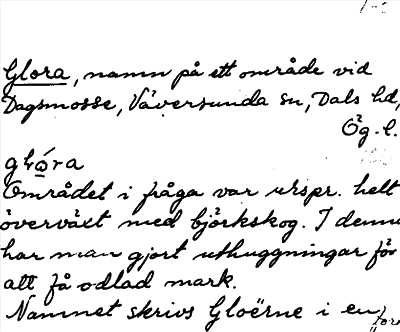 Glora, namn på ett område vid
Dagsmosse, Väversunda sn, Dals hd,
Ög. l.
gló̲ra
Området i fråga var urspr. helt
överväxt med björkskog. I denna
har man gjort uthuggningar för
att få odlad mark.
Namnet skrivs Gloërne i en